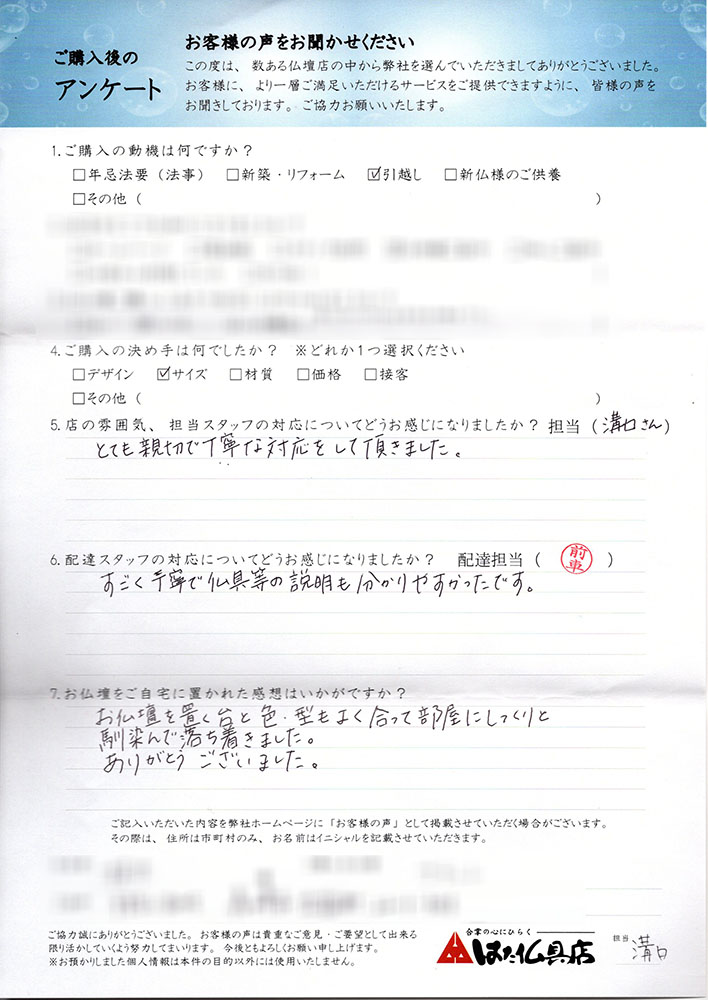 ご購入後の
アンケート
お客様の声をお聞かせください
この度は、数ある仏壇店の中から弊社を選んでいただきましてありがとうございました。
お客様に、より一層ご満足いただけるサービスをご提供できますように、皆様の声を
お聞きしております。ご協力お願いいたします。
1.ご購入の動機は何ですか？
□年忌法要（法事） □新築・リフォーム ☑引越し □新仏様のご供養
□その他（ ）
4.ご購入の決め手は何でしたか？ ※どれか1つ選択ください
□デザイン ☑サイズ □材質 □価格 □接客
□その他（ ）
5.店の雰囲気、担当スタッフの対応についてどうお感じになりましたか？担当（溝口さん）
とても親切で丁寧な対応をして頂きました。
6.配達スタッフの対応についてどうお感じになりましたか？ 配達担当（ 前車 ）
すごく丁寧で仏具等の説明も分かりやすかったです。
7.お仏壇をご自宅に置かれた感想はいかがですか？
お仏壇を置く台と色・型もよく合って部屋にしっくりと
馴染んで落ち着きました。
ありがとうございました。
ご記入いただいた内容を弊社ホームページに「お客様の声」として掲載させていただく場合がございます。
その際は、住所は市町村のみ、お名前はイニシャルを記載させていただきます。
ご協力誠にありがとうございました。お客様の声は貴重なご意見・ご要望として出来る
限り活かしていくよう努力してまいります。今後ともよろしくお願い申し上げます。
※お預かりしました個人情報は本件の目的以外には使用いたしません。
合掌の心にひらく
はた仏具店
担当 溝口